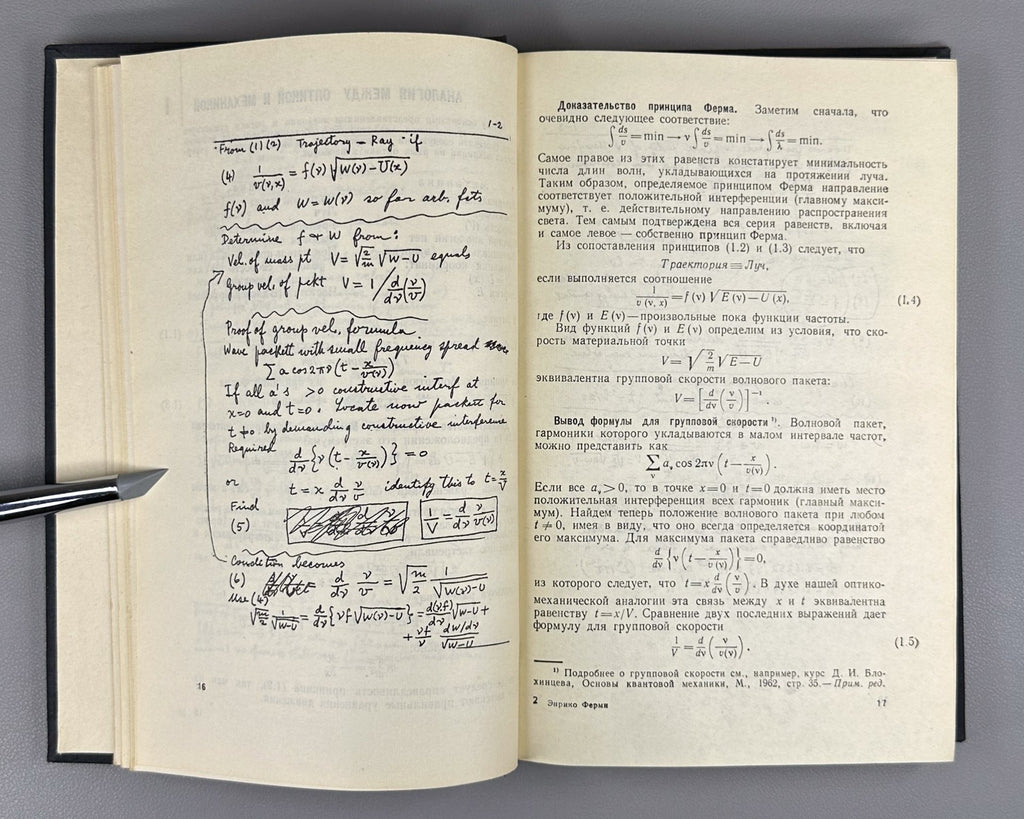 1-2
From (1) (2) Trajectory – Ray if
(4) 1/v(ν,x) = f(ν) √W(ν)–U(x)
f(ν) and W=W(ν) so far arb. fcts
Determine f & W from:
Vel. of mass pt V=√2/m √W–U equals
Group vel. of pckt V = 1/ d/dν (ν/v)
Proof of group vel. formula
Wave packett with small frequency spread
∑ a cos 2πν (t – x/v(ν))
If all a's >0 constructive interf at
x=0 and t=0. Locate now packett for
t≠0 by demanding constructive interference
Required
d/dν {ν (t – x/v(ν))} = 0
or t = x d/dν ν/v identify this to t = x/V
Find
(5) 1/V = d/dν ν/v(ν)
Condition becomes
(6) d/dν ν/v = √m/2 1/√W(ν)–U
Use (4)
√m/2 1/√W–U = d/dν {νf √W(ν)–U} = d(νf)/dν √W–U +
+ νf/2 dW/dν/√W–U
16
Доказательство принципа Ферма. Заметим сначала, что
очевидно следующее соответствие:
∫ ds/v = min → ν ∫ ds/v = min → ∫ ds/λ = min.
Самое правое из этих равенств констатирует минимальность
числа длин волн, укладывающихся на протяжении луча.
Таким образом, определяемое принципом Ферма направление
соответствует положительной интерференции (главному макси-
муму), т. е. действительному направлению распространения
света. Тем самым подтверждена вся серия равенств, включая
и самое левое — собственно принцип Ферма.
Из сопоставления принципов (1.2) и (1.3) следует, что
Траектория ≡ Луч,
если выполняется соотношение
1/v(ν, x) = f(ν) √E(ν) — U(x), (1.4)
где f(ν) и E(ν) — произвольные пока функции частоты.
Вид функций f(ν) и E(ν) определим из условия, что ско-
рость материальной точки
V = √2/m √E — U
эквивалентна групповой скорости волнового пакета:
V = [d/dν (ν/v)]⁻¹.
Вывод формулы для групповой скорости ¹). Волновой пакет,
гармоники которого укладываются в малом интервале частот,
можно представить как
∑ν aν cos 2πν (t — x/v(ν)).
Если все aν > 0, то в точке x = 0 и t = 0 должна иметь место
положительная интерференция всех гармоник (главный макси-
мум). Найдем теперь положение волнового пакета при любом
t ≠ 0, имея в виду, что оно всегда определяется координатой
его максимума. Для максимума пакета справедливо равенство
d/dν {ν (t — x/v(ν))} = 0,
из которого следует, что t = x d/dν (ν/v). В духе нашей оптико-
механической аналогии эта связь между x и t эквивалентна
равенству t = x/V. Сравнение двух последних выражений дает
формулу для групповой скорости
1/V = d/dν (ν/v(ν)). (1.5)
¹) Подробнее о групповой скорости см., например, курс Д. И. Бло-
хинцева, Основы квантовой механики, М., 1962, стр. 35. — Прим. ред.
2 Энрико Ферми 17